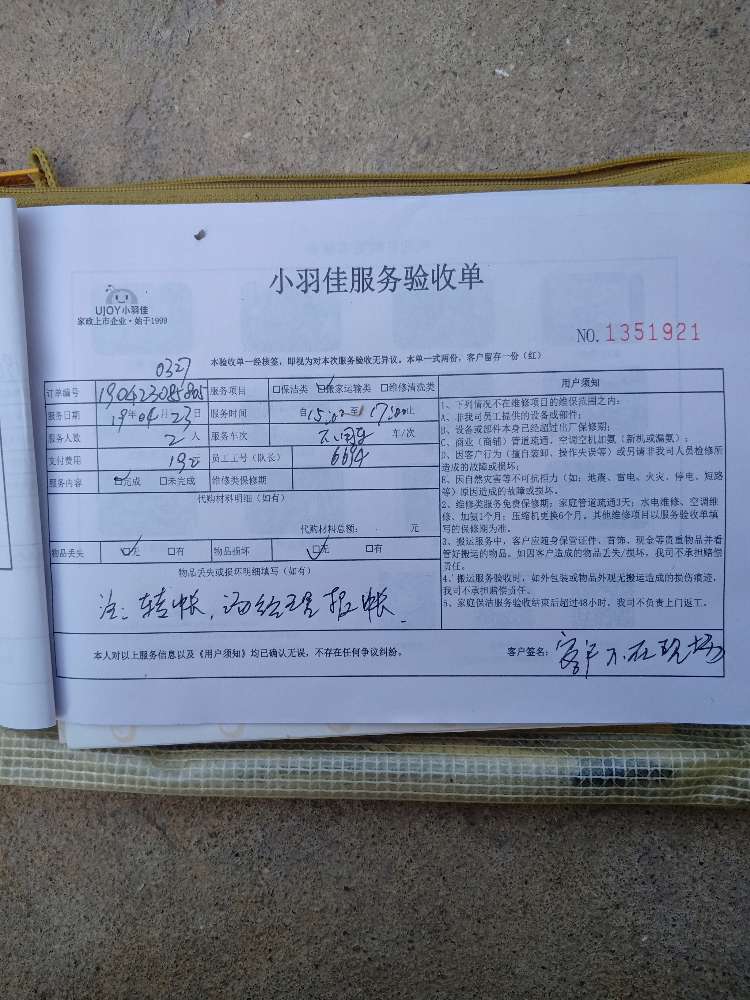 小羽佳服务验收单
UJOY小羽佳
家政上市企业·始于1999
NO. 1351921
0327
本验收单一经接签，即视为对本次服务验收无异议。本单一式两份，客户留存一份（红）
订单编号 190423085805 服务项目 □保洁类 ☑搬家运输类 □维修清洗类
服务日期 19年04月23日 服务时间 自15:00至17:00止
服务人数 2人 服务车次 不用车 车/次
支付费用 员工工号（队长） 6694
服务内容 ☑完成 □未完成 维修类保修期
代购材料明细（如有）
代购材料总额： 元
物品丢失 ☑无 □有 物品损坏 ☑无 □有
物品丢失或损坏明细填写（如有）
注：转帐，
报帐.
用户须知
1、下列情况不在维修项目的维保范围之内：
A、非我司员工提供的设备或部件；
B、设备或部件本身已经超过出厂保修期；
C、商业（商铺）管道疏通、空调空机加氨（新机或漏氨）；
D、因客户行为（擅自装卸、操作失误等）或另请非我司人员检修所
造成的故障或损坏；
E、因自然灾害等不可抗力（如：地震、雷电、火灾、停电、短路
等）原因造成的故障或损坏。
2、维修类服务免费保修期：家庭管道疏通3天；水电维修、空调维
修、加氨1个月；压缩机更换6个月。其他维修项目以服务验收单填写
的保修期为准。
3、搬运服务中，客户应随身保管证件、首饰、现金等贵重物品并看
管好搬运的物品。如因客户造成的物品丢失/损坏，我司不承担赔偿
责任。
4、搬运服务验收时，如外包装或物品外观无搬运造成的损伤痕迹，
我司不承担赔偿责任。
5、家庭保洁服务验收结束后超过48小时，我司不负责上门返工。
本人对以上服务信息以及《用户须知》均已确认无误，不存在任何争议纠纷。 客户签名：客户不在现场